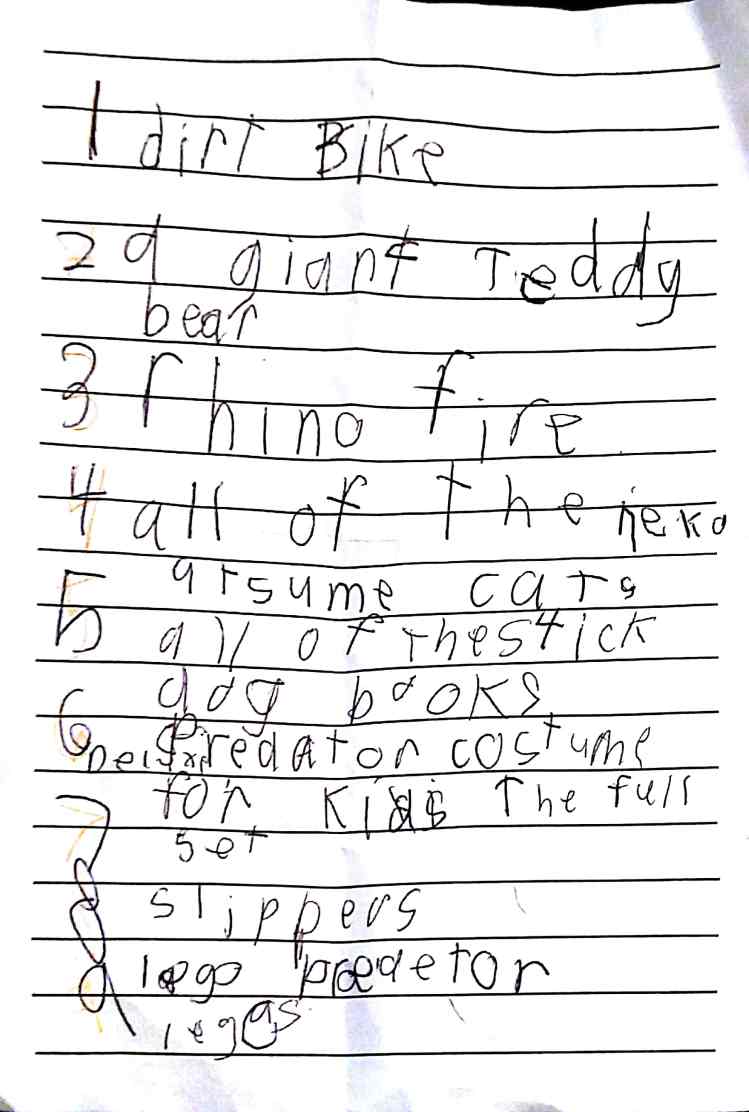 1 dirt Bike
2 a giant Teddy
bear
3 rhino fire
4 all of the neko
atsume cats
5 all of the stick
dog books
6 Predator costume
for kids The full
7 set
8 slippers
9 lego predetor
legos